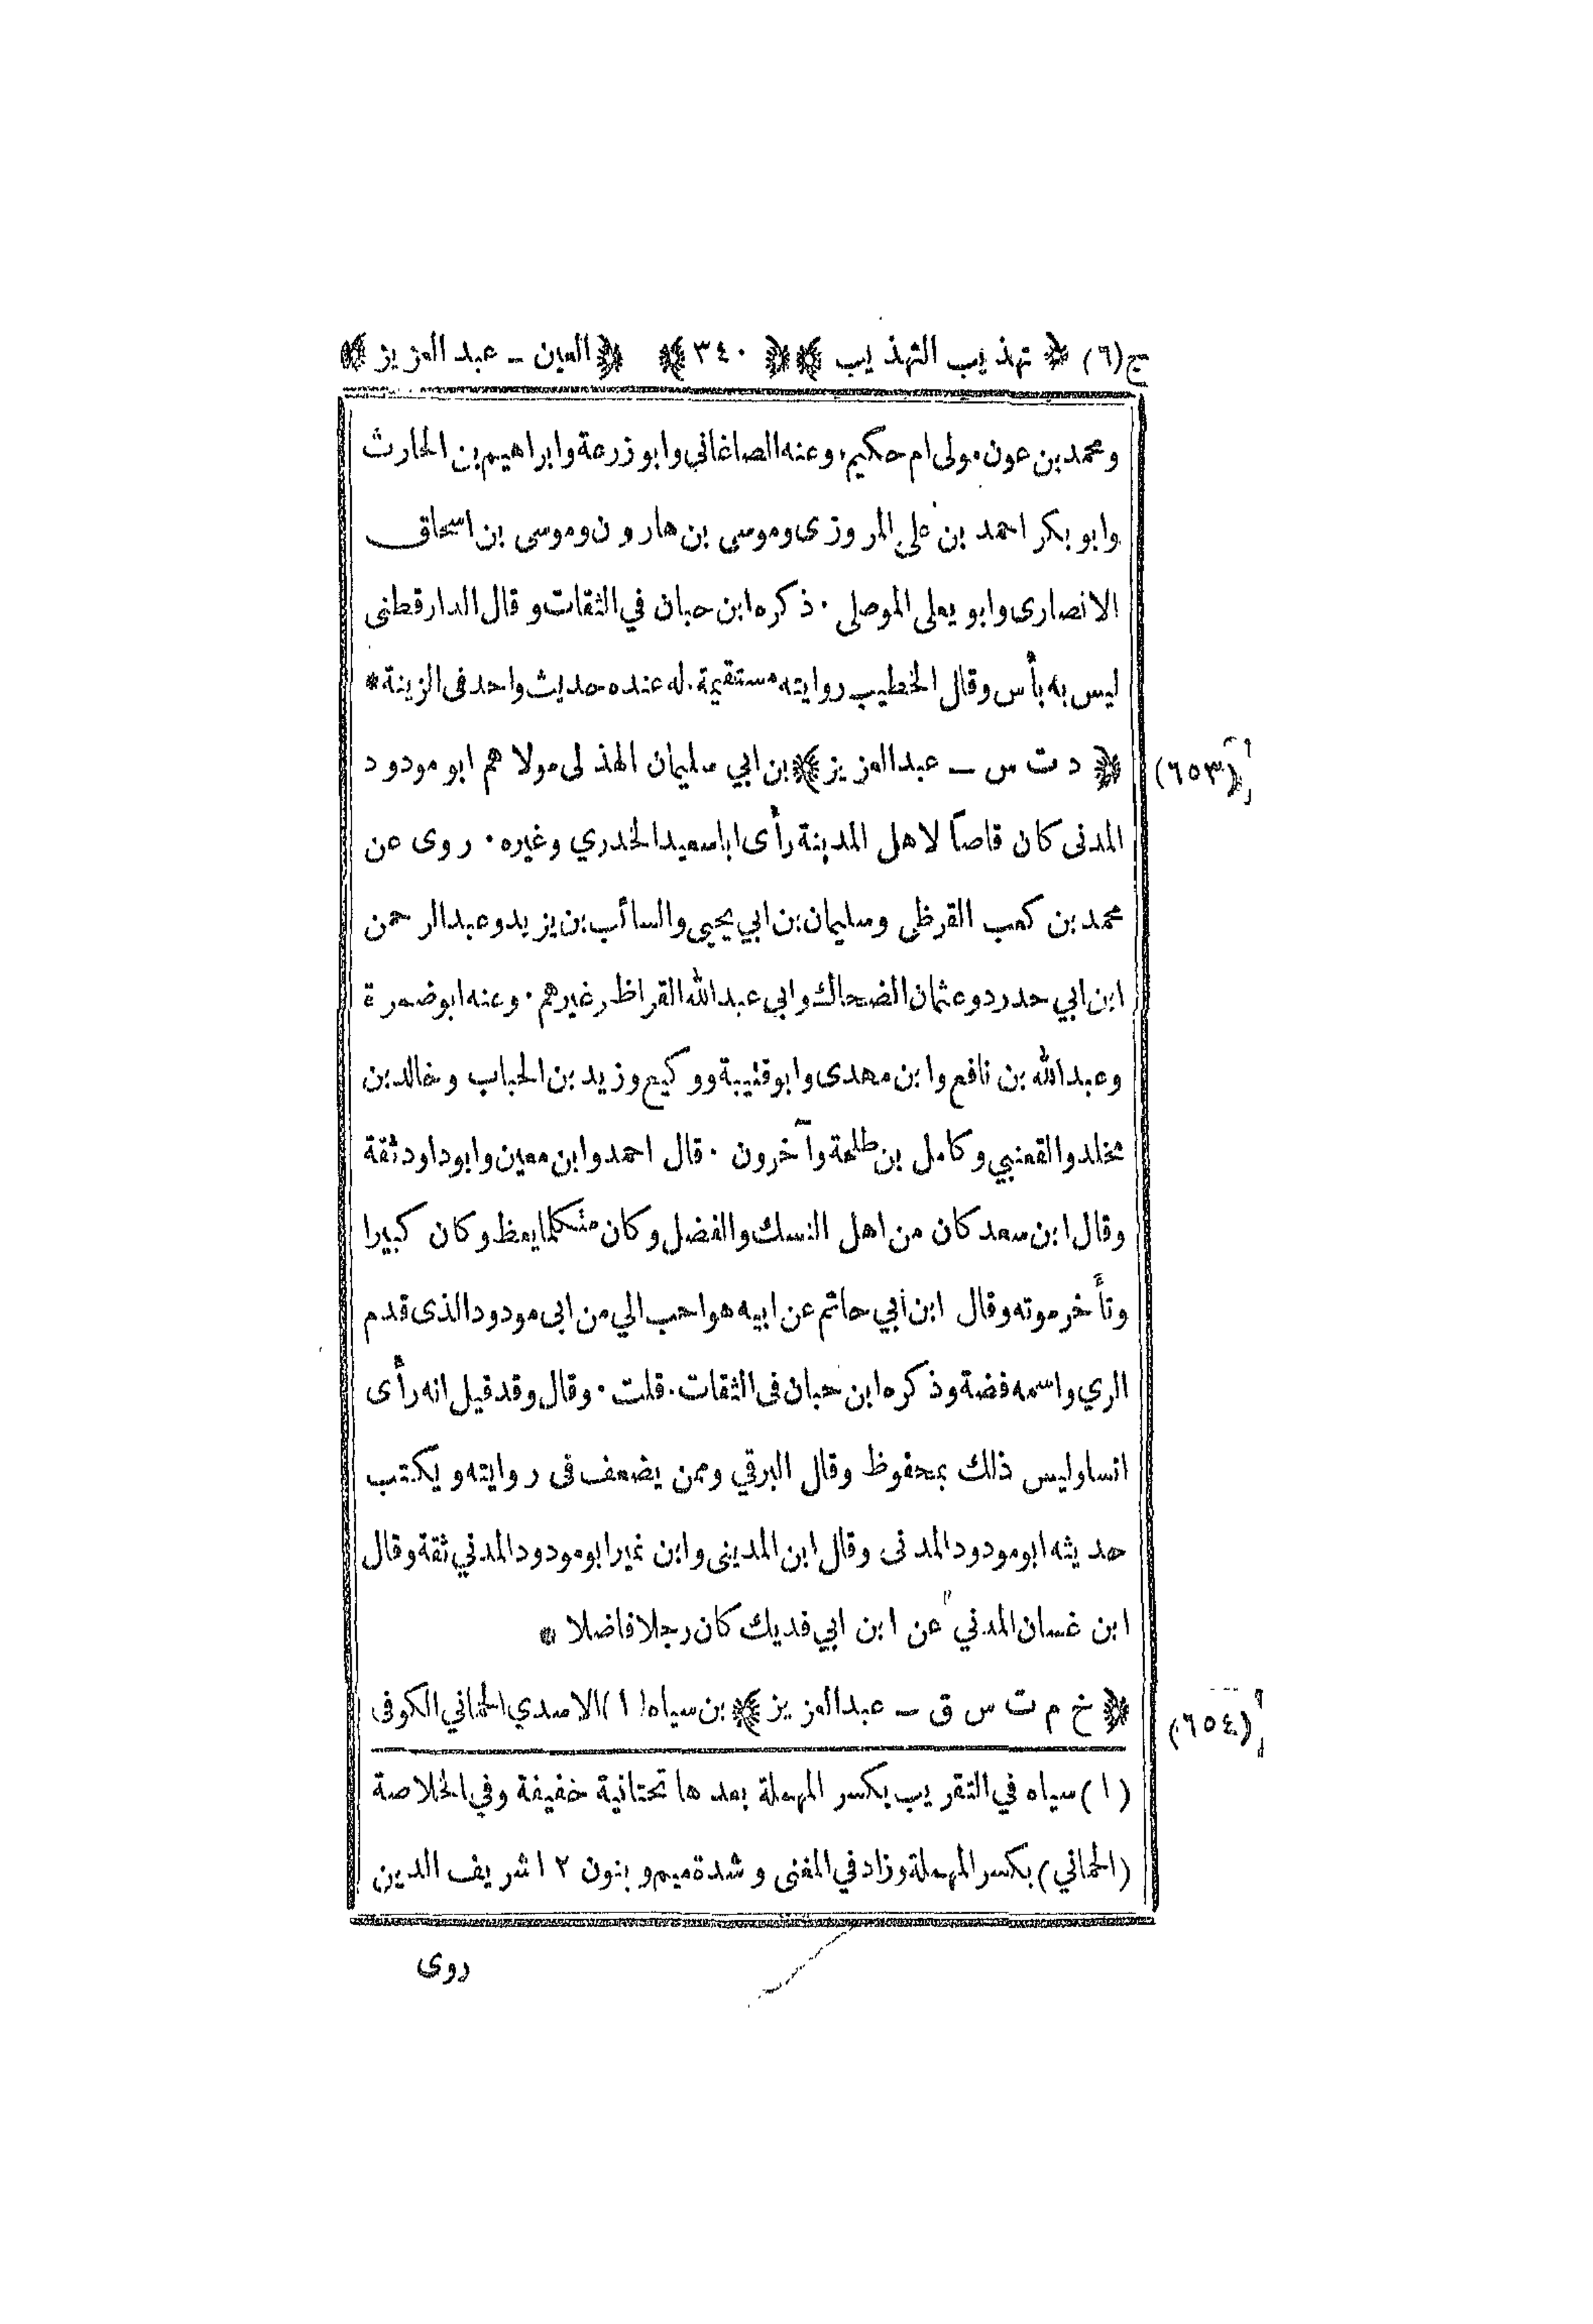 ج(٦) ﴿تهذيب التهذيب﴾ ﴿٣٤٠﴾ ﴿العين – عبد العزيز﴾
ومحمد بن عون مولى ام حكيم. وعنه الصاغاني وابو زرعة وابراهيم بن الحارث
وابو بكر احمد بن علي المروزى وموسى بن هارون وموسى بن اسحاق
الانصارى وابو يعلى الموصلى . ذكره ابن حبان في الثقات وقال الدارقطنى
ليس به بأس وقال الخطيب روايته مستقيمة . له عنده حديث واحد فى الزينة *
(٦٥٣) ﴿د ت س – عبد العزيز﴾ بن ابي سليمان الهذلى مولاهم ابو مودود
المدنى كان قاصاً لاهل المدينة رأى ابا سعيد الخدري وغيره . روى عن
محمد بن كعب القرظى وسليمان بن ابي يحيى والسائب بن يزيد وعبد الرحمن
ابن ابي حدرد وعثمان الضحاك وابى عبدالله القراظ وغيرهم . وعنه ابو ضمرة
وعبدالله بن نافع وابن مهدى وابو قتيبة ووكيع وزيد بن الحباب وخالد بن
مخلد والقعنبي وكامل بن طلحة وآخرون . قال احمد وابن معين وابو داود ثقة
وقال ابن سعد كان من اهل النسك والفضل وكان متكلما يعظ وكان كبيرا
وتأخر موته وقال ابن أبي حاتم عن ابيه هو احب الي من ابى مودود الذى قدم
الري واسمه فضة وذكره ابن حبان فى الثقات . قلت . وقال وقد قيل انه رأى
انسا وليس ذلك بمحفوظ وقال البرقي وممن يضعف فى روايته ويكتب
حديثه ابو مودود المدنى وقال ابن المدينى وابن نمير ابو مودود المدني ثقة وقال
ابن غسان المدني عن ابن ابي فديك كان رجلا فاضلا *
(٦٥٤) ﴿خ م ت س ق – عبد العزيز﴾ بن سياه (١) الاسدي الحماني الكوفى
(١) سياه في التقريب بكسر المهملة بعدها تحتانية خفيفة وفي الخلاصة
(الحماني) بكسر المهملة وزاد في المغنى وشدة ميم وبنون ١٢ شريف الدين
روى